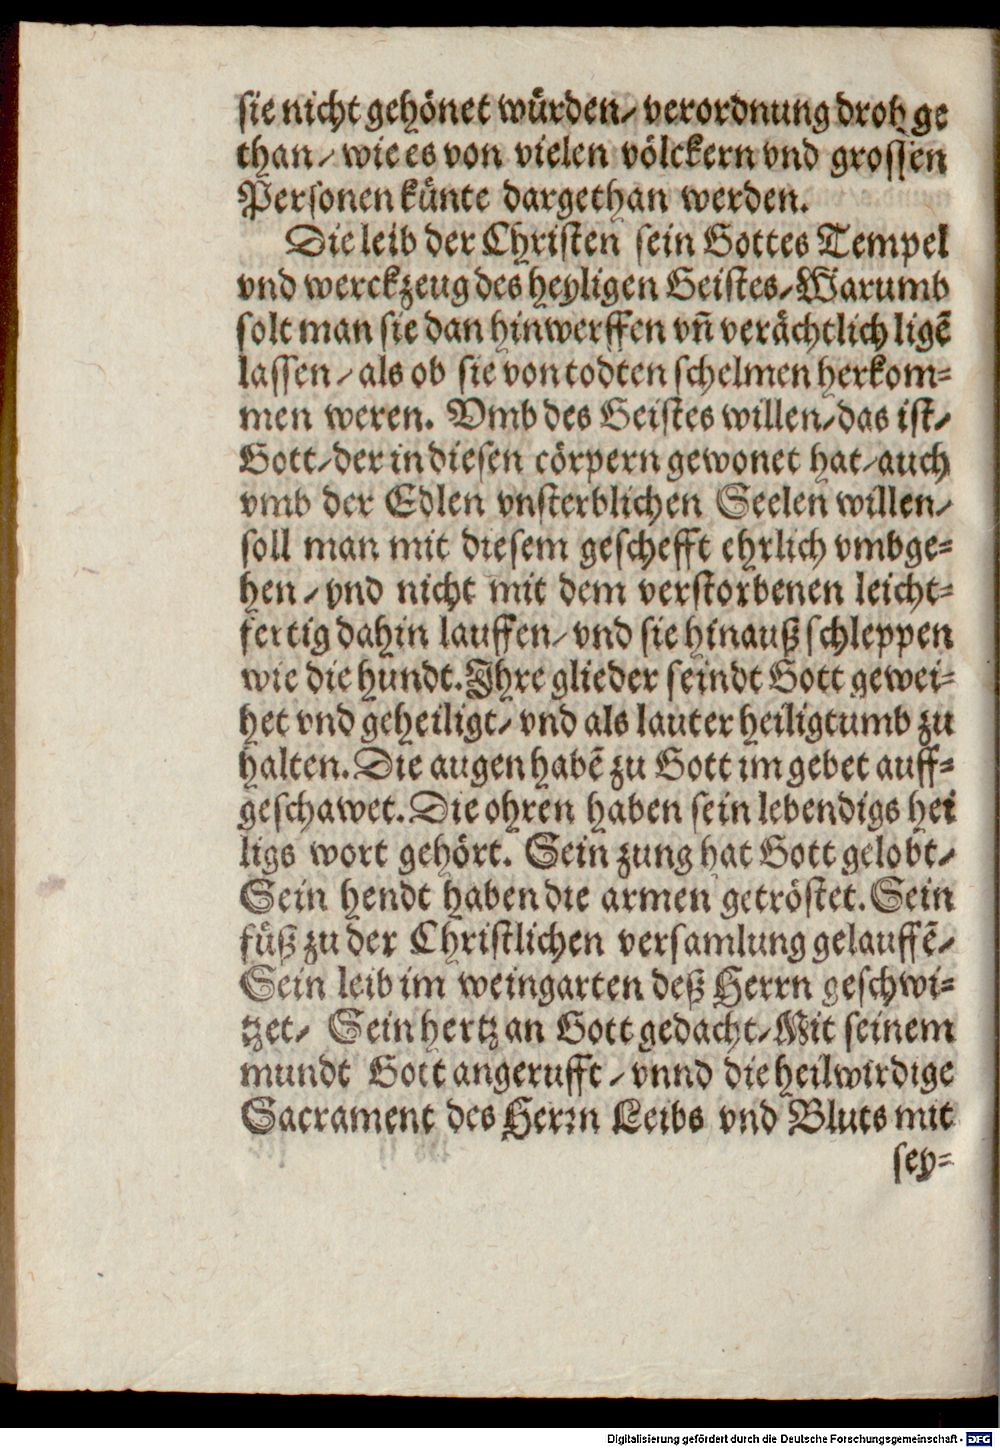 sie nicht gehönet würden/ verordnung drob ge
than/ wie es von vielen völckern vnd grossen
Personen künte dargethan werden.
Die leib der Christen sein Gottes Tempel
vnd werckzeug des heyligen Geistes/ Warumb
solt man sie dan hinwerffen vñ verächtlich ligẽ
lassen/ als ob sie von todten schelmen herkom=
men weren. Vmb des Geistes willen/ das ist/
Gott/ der in diesen cörpern gewonet hat/ auch
vmb der Edlen vnsterblichen Seelen willen/
soll man mit diesem geschefft ehrlich vmbge=
hen/ vnd nicht mit dem verstorbenen leicht=
fertig dahin lauffen/ vnd sie hinauß schleppen
wie die hundt. Ihre glieder seindt Gott gewei=
het vnd geheiligt/ vnd als lauter heiligtumb zu
halten. Die augen habẽ zu Gott im gebet auff=
geschawet. Die ohren haben sein lebendigs hei
ligs wort gehört. Sein zung hat Gott gelobt/
Sein hendt haben die armen getröstet. Sein
füß zu der Christlichen versamlung gelauffẽ/
Sein leib im weingarten deß Herrn geschwi=
tzet/ Sein hertz an Gott gedacht/ Mit seinem
mundt Gott angerufft/ vnnd die heilwirdige
Sacrament des Herrn Leibs vnd Bluts mit
sey=
Digitalisierung gefördert durch die Deutsche Forschungsgemeinschaft - DFG